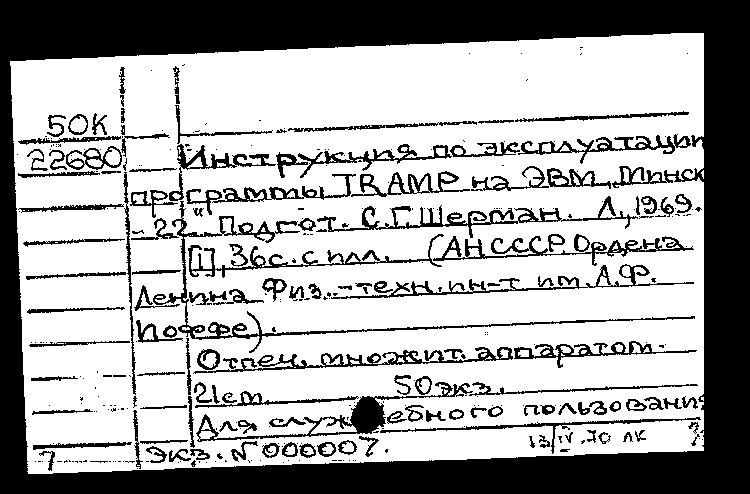 50К
22680 Инструкция по эксплуатации
программы TRAMP на ЭВМ „Минск
-22". Подгот. С.Г.Шерман. Л., 1969.
[1], 36с. с илл. (АН СССР. Ордена
Ленина Физ.-техн. ин-т им. А.Ф.
Иоффе).
Отпеч. множит. аппаратом.
21см. 50экз.
Для служебного пользования
7 Экз. № 000007. 13/IV.70 лк